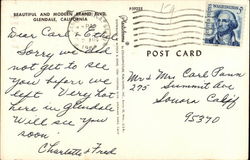 BEAUTIFUL AND MODERN BRAND BLVD.
GLENDALE, CALIFORNIA
P59255
Dear Carl &
Sorry we did
not get to see
you before we
left. Very hot
here in Glendale
Will see you
soon.
Charlotte & Fred
POST CARD
Mr & Mrs Carl
275 Summit Ave
Sonora Calif
95370